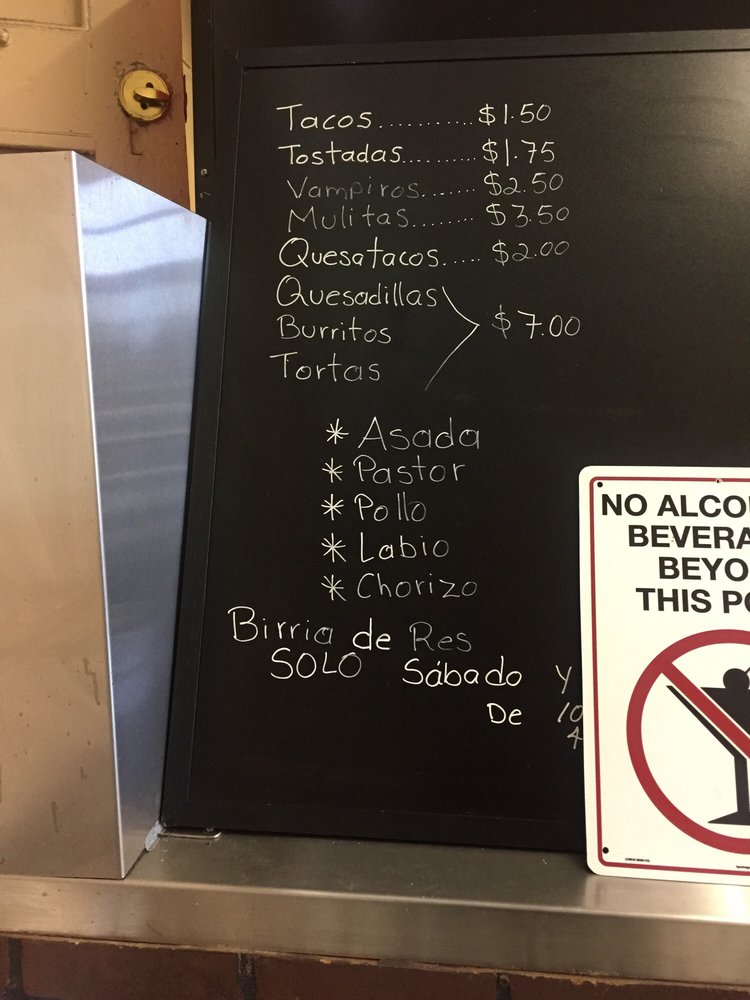 Tacos........... $1.50
Tostadas......... $1.75
Vampiros....... $2.50
Mulitas........ $3.50
Quesatacos..... $2.00
Quesadillas
Burritos
Tortas
$7.00
* Asada
* Pastor
* Pollo
* Labio
* Chorizo
Birria de Res
SOLO Sábado Y
De 10
4
NO ALCO
BEVERA
BEYO
THIS PO